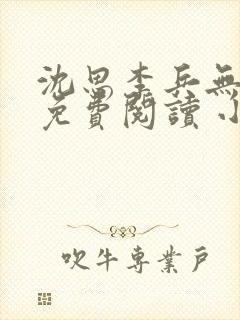 沈思李兵無
免費閱讀 小
吹牛專業戶